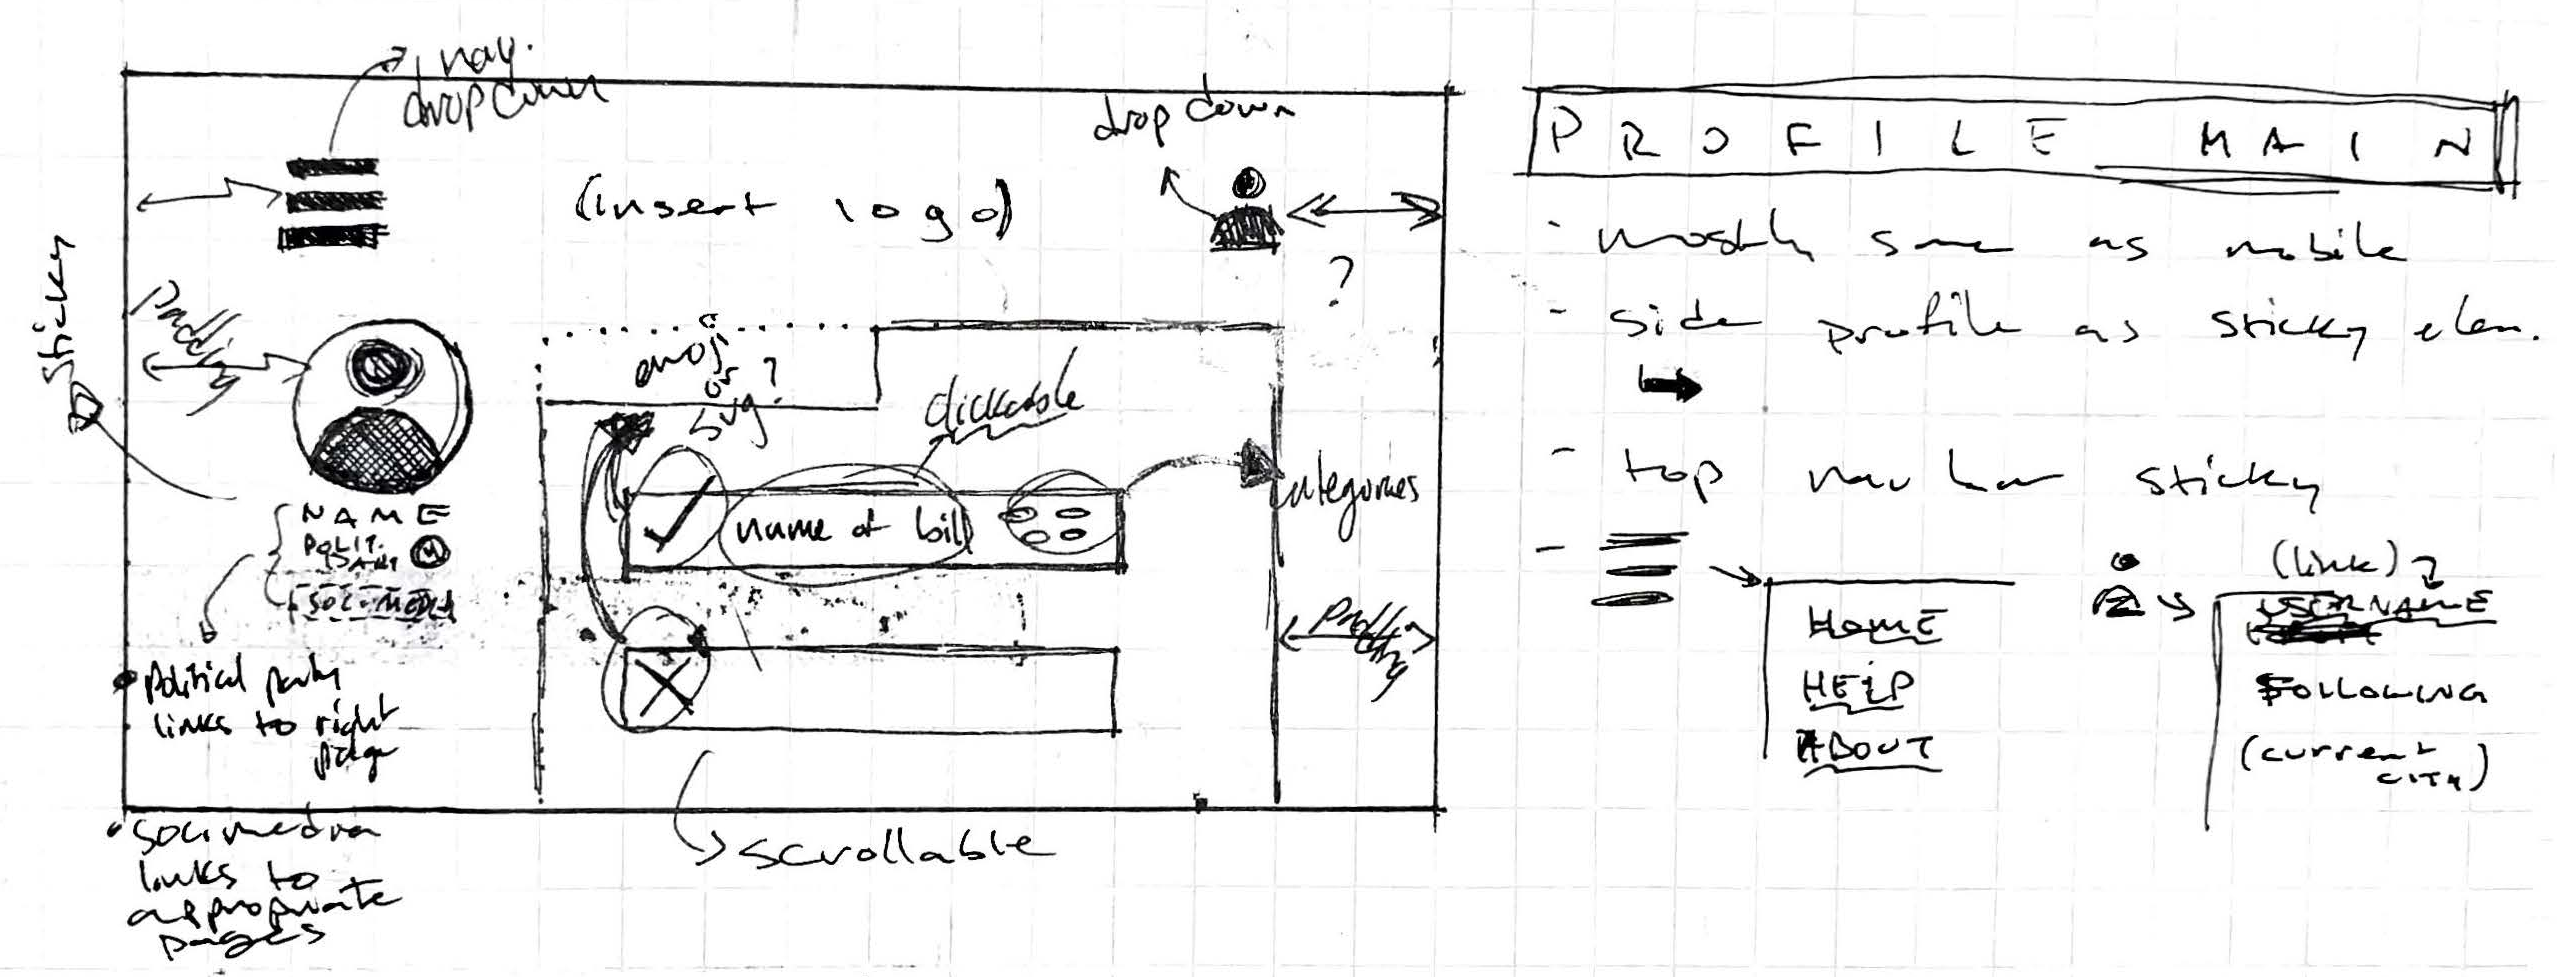 nav.
dropdown
drop down
(insert logo)
?
Sticky
Padding
emoji
or
svg?
clickable
name of bill
categories
NAME
POLIT.
PARTY
SOC. MEDIA
Padding
Political party
links to right
page
scrollable
soc. media
links to
appropriate
pages
PROFILE MAIN
- mostly same as mobile
- side profile as sticky elem.
- top nav bar sticky
-
HOME
HELP
ABOUT
(link)
USERNAME
FOLLOWING
(current
city)